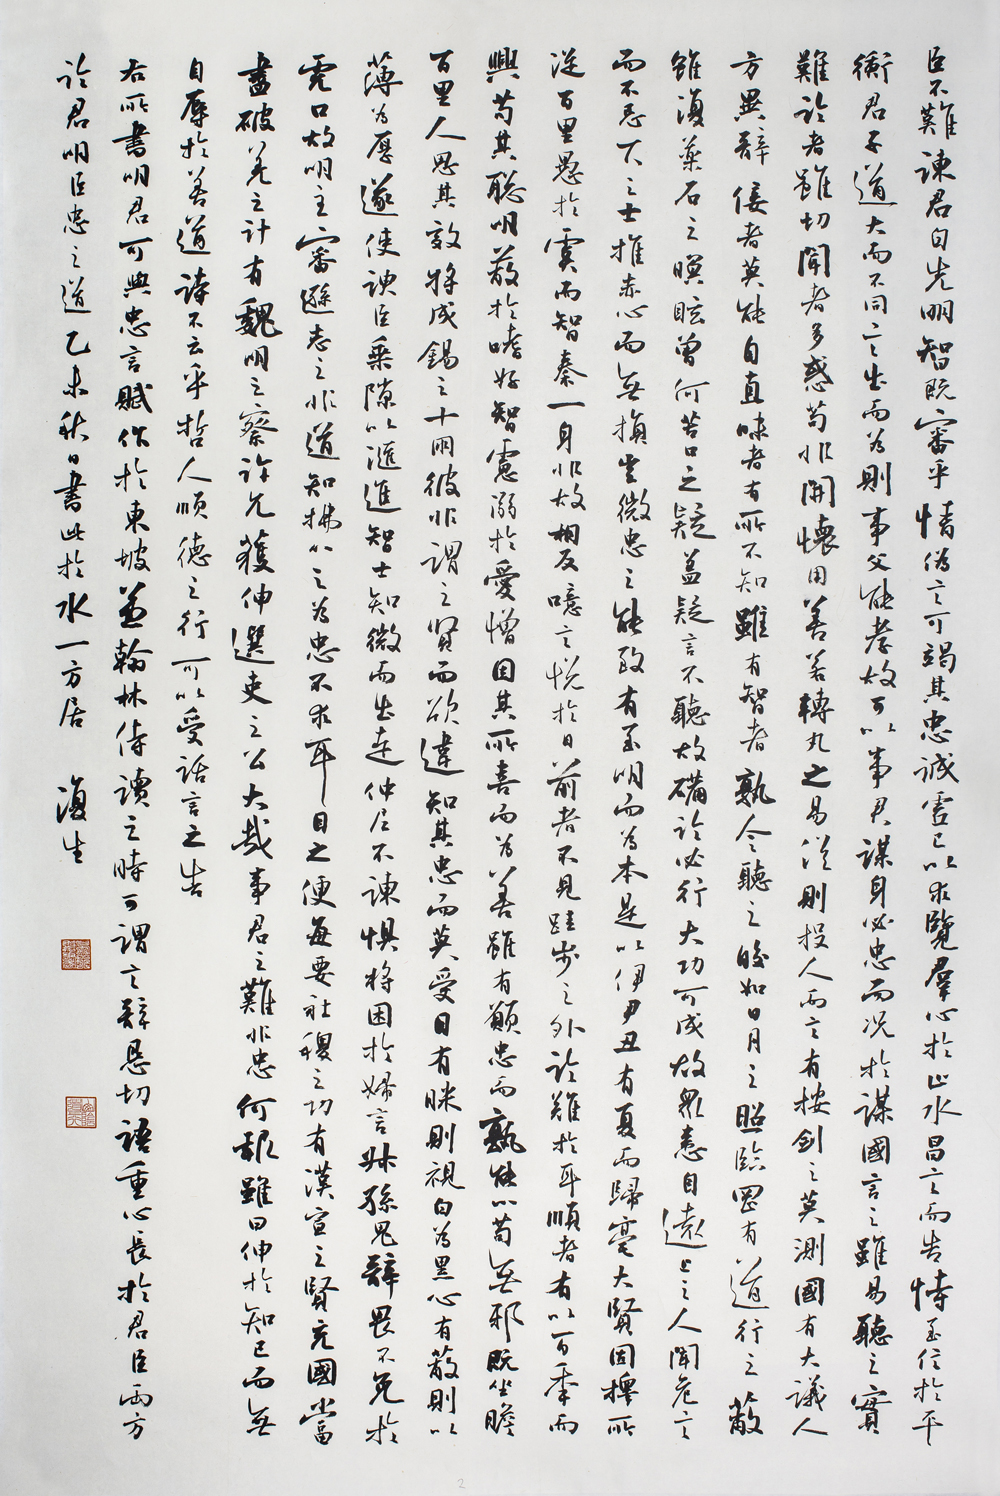 臣不難諫君自先明智既審乎情偽言可竭其忠誠虛己以求覽群心於止水昌言而告恃至信於平
衡君子道大而不同言出而為則事父能孝故可以事君謀身必忠而況於謀國言之雖易聽之實
難論者雖切聞者多惑苟非開懷用善若轉丸之易從則投人而言有按劍之莫測國有大議人
方異辭佞者莫能自直昧者有所不知雖有智者孰令聽之皎如日月之照臨罔有道行之蔽
雖復藥石之瞑眩曾何苦口之疑蓋疑言不聽故確論必行大功可成故眾患自遠上之人聞危言
而不忌下之士推赤心而無損豈微忠之能致有至明而為本是以伊尹丑有夏而歸亳大賢固擇所
從百里愚於虞而智秦一身非故相反噫言悅於目前者不見跬步之外論難於耳順者有以百年而
興苟其聰明蔽於嗜好智慮溺於愛憎因其所喜而為善雖有願忠而孰能心苟無邪既坐瞻
百里人思其效將或錫之十朋彼非謂之賢而欲違知其忠而莫受目有眯則視白為黑心有蔽則以
薄為厚遂使諛臣乘隙以匯進智士知微而出走仲尼不諫懼將困於婦言叔孫詭辭畏不免於
虎口故明主審遜志之非道知拂心之為忠不求耳目之便每要社稷之功有漢宣之賢充國當
盡破羌之計有魏明之察許允獲伸選吏之公大哉事君之難非忠何報雖曰伸於知己而無
自辱於善道詩不云乎哲人順德之行可以受話言之告
右所書明君可與忠言賦作於東坡並翰林侍讀之時可謂言辭懇切語重心長於君臣兩方
論君明臣忠之道乙未秋日書此於水一方居 復生